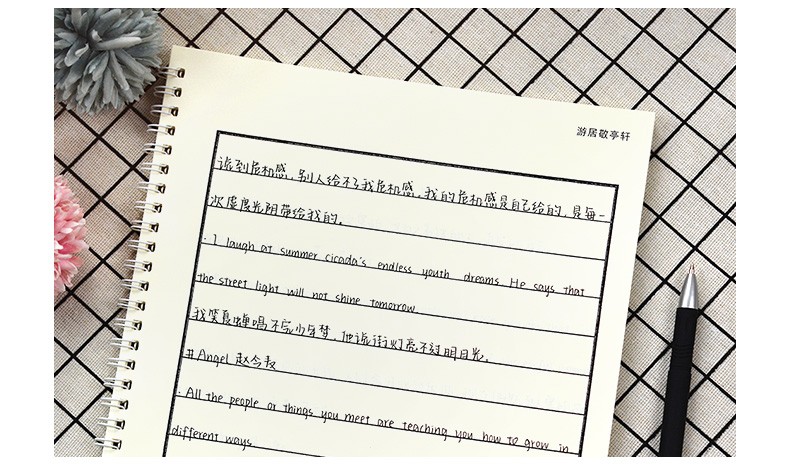 游居敬亭轩
说到危机感,别人给不了我危机感,我的危机感是自己给的,是每一
次虚度光阴带给我的。
· I laugh at summer cicada's endless youth dreams. He says that
the street light will not shine tomorrow.
我笑夏蝉唱不完少年梦,他说街灯亮不过明日光。
#Angel 赵今麦
· All the people or things you meet are teaching you how to grow in
different ways.